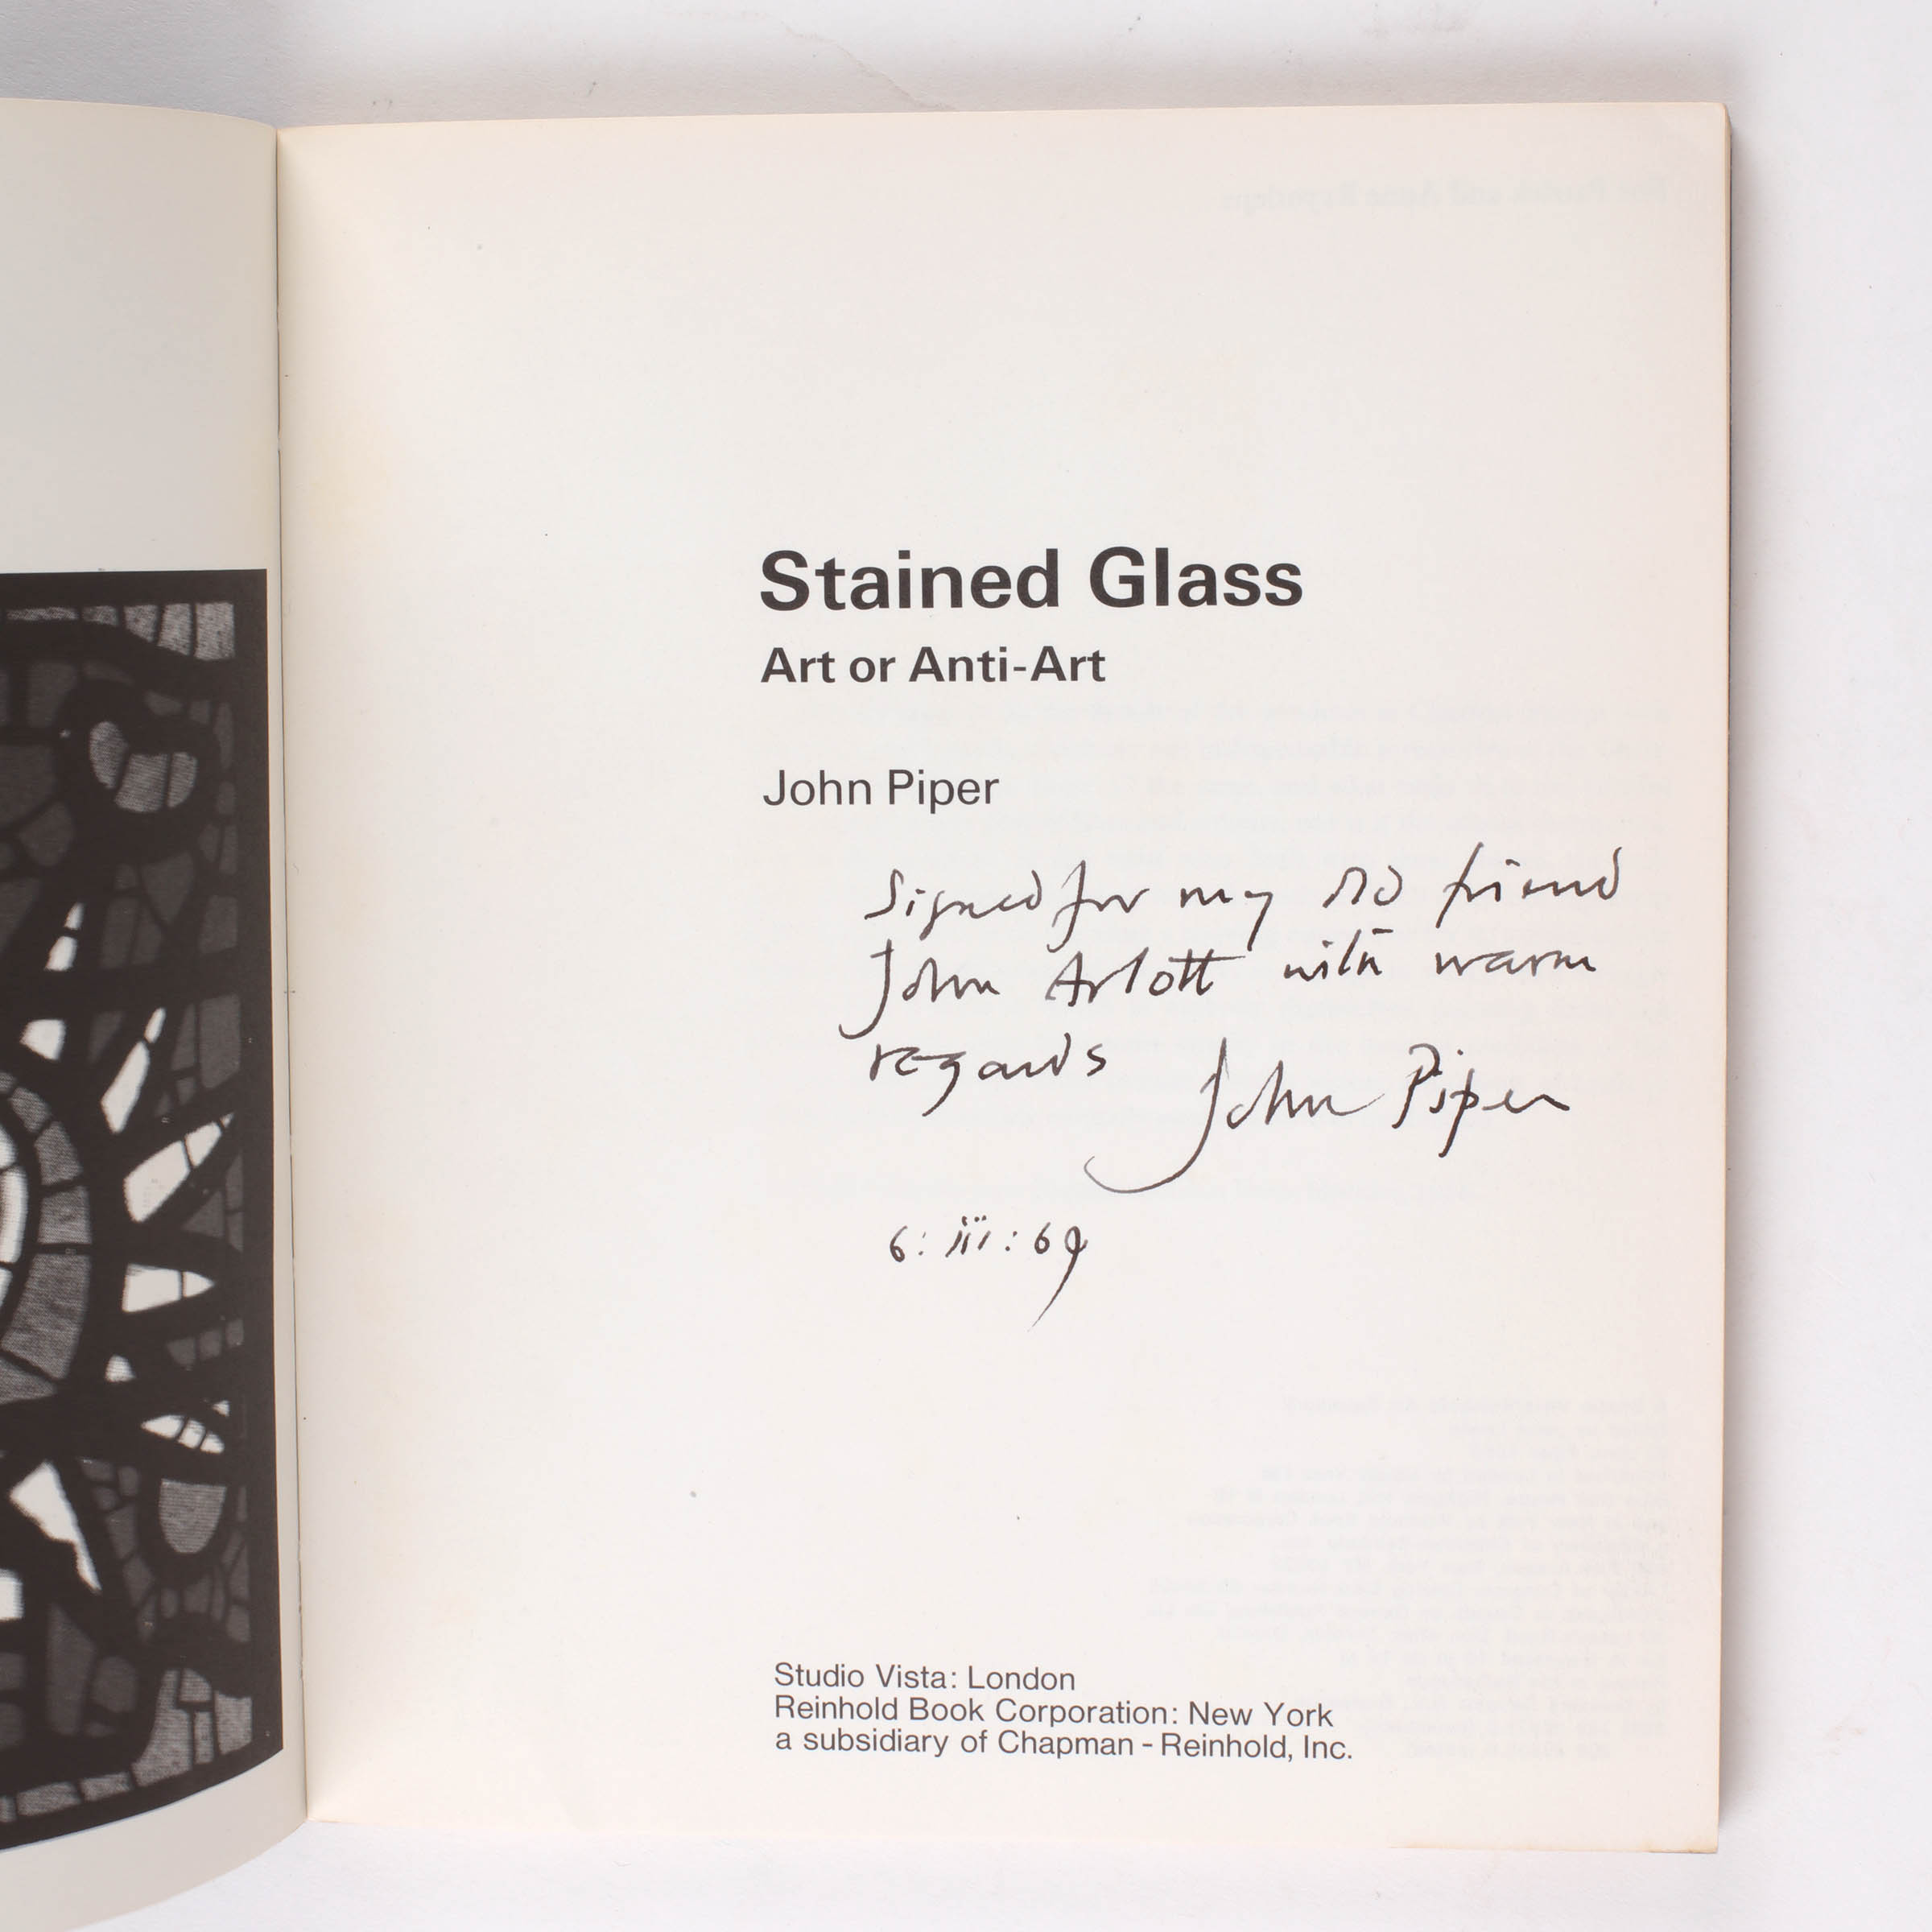 Stained Glass
Art or Anti-Art
John Piper
Signed for my old friend
John Arlott with warm
regards John Piper
6: iii: 69
Studio Vista: London
Reinhold Book Corporation: New York
a subsidiary of Chapman - Reinhold, Inc.